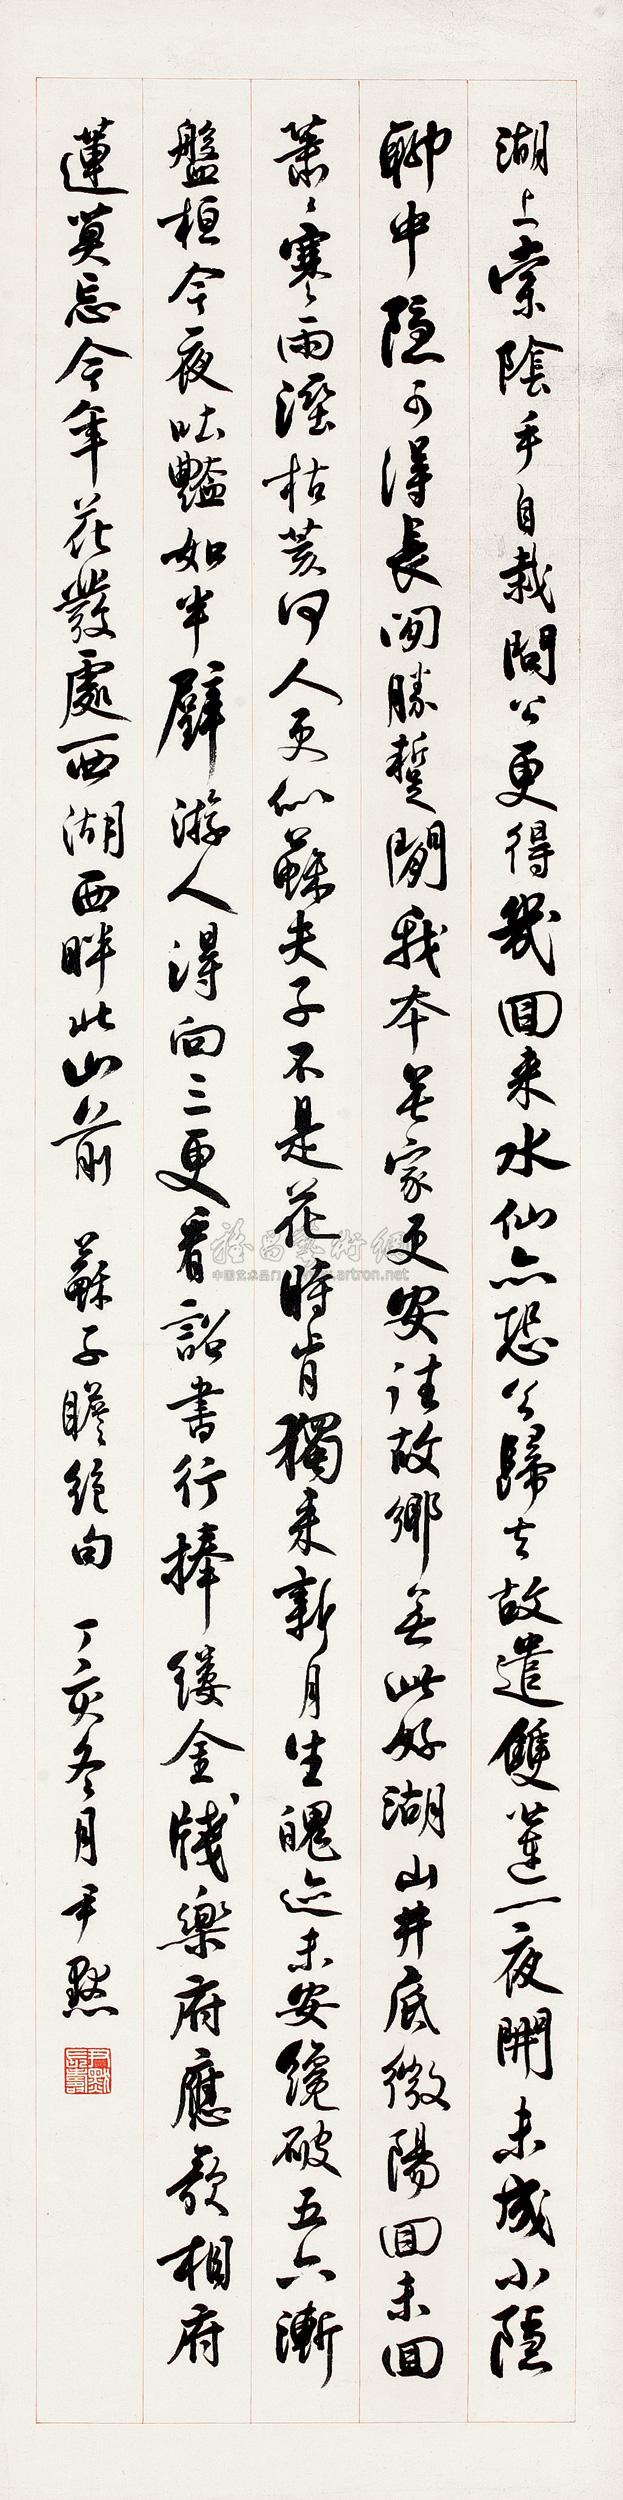 湖上棠陰手自栽問公更得幾回来水仙亦恐公歸去故遣雙蓮一夜開未成小隱
聊中隱可得長閒勝蹔閒我本無家更安往故鄉無此好湖山井底微陽回未回
蕭〻寒雨溼枯荄何人更似蘇夫子不是花時肯獨来新月生魄迹未安纔破五六漸
盤桓今夜吐豔如半璧游人得向三更看詔書行捧縷金牋樂府應歌相府
蓮莫忘今年花發處西湖西畔此山前 蘇子瞻絕句 丁亥冬月 尹默
雅昌藝術網
artron.net